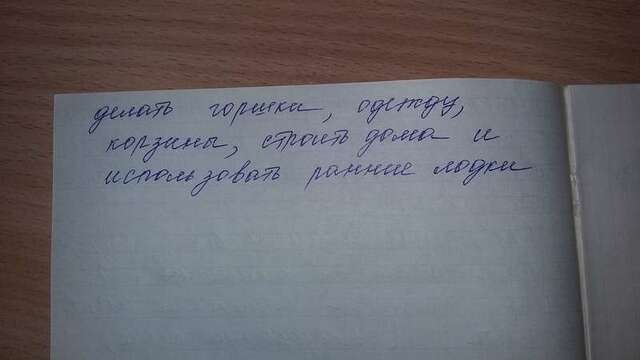 делать горшки, одежду,
корзины, строить дома и
использовать ранние лодки